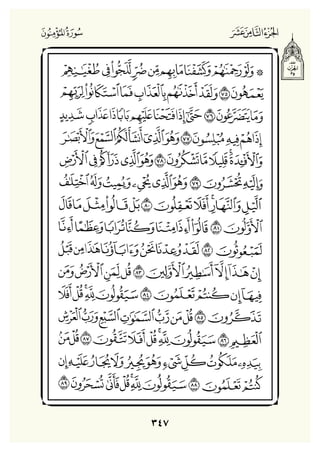 الجزء الثامن عشر
سورة المؤمنون
۞ وَلَوْ رَحِمْنَٰهُمْ وَكَشَفْنَا مَا بِهِم مِّن ضُرٍّ لَّلَجُّوا۟ فِى طُغْيَٰنِهِمْ
يَعْمَهُونَ ٧٥ وَلَقَدْ أَخَذْنَٰهُم بِٱلْعَذَابِ فَمَا ٱسْتَكَانُوا۟ لِرَبِّهِمْ
وَمَا يَتَضَرَّعُونَ ٧٦ حَتَّىٰٓ إِذَا فَتَحْنَا عَلَيْهِم بَابًا ذَا عَذَابٍ شَدِيدٍ
إِذَا هُمْ فِيهِ مُبْلِسُونَ ٧٧ وَهُوَ ٱلَّذِىٓ أَنشَأَ لَكُمُ ٱلسَّمْعَ وَٱلْأَبْصَٰرَ
وَٱلْأَفْـِٔدَةَ قَلِيلًا مَّا تَشْكُرُونَ ٧٨ وَهُوَ ٱلَّذِى ذَرَأَكُمْ فِى ٱلْأَرْضِ
وَإِلَيْهِ تُحْشَرُونَ ٧٩ وَهُوَ ٱلَّذِى يُحْىِۦ وَيُمِيتُ وَلَهُ ٱخْتِلَٰفُ
ٱلَّيْلِ وَٱلنَّهَارِ أَفَلَا تَعْقِلُونَ ٨٠ بَلْ قَالُوا۟ مِثْلَ مَا قَالَ
ٱلْأَوَّلُونَ ٨١ قَالُوٓا۟ أَءِذَا مِتْنَا وَكُنَّا تُرَابًا وَعِظَٰمًا أَءِنَّا
لَمَبْعُوثُونَ ٨٢ لَقَدْ وُعِدْنَا نَحْنُ وَءَابَآؤُنَا هَٰذَا مِن قَبْلُ
إِنْ هَٰذَآ إِلَّآ أَسَٰطِيرُ ٱلْأَوَّلِينَ ٨٣ قُل لِّمَنِ ٱلْأَرْضُ وَمَن
فِيهَآ إِن كُنتُمْ تَعْلَمُونَ ٨٤ سَيَقُولُونَ لِلَّهِ قُلْ أَفَلَا
تَذَكَّرُونَ ٨٥ قُلْ مَن رَّبُّ ٱلسَّمَٰوَٰتِ ٱلسَّبْعِ وَرَبُّ ٱلْعَرْشِ
ٱلْعَظِيمِ ٨٦ سَيَقُولُونَ لِلَّهِ قُلْ أَفَلَا تَتَّقُونَ ٨٧ قُلْ مَنۢ
بِيَدِهِۦ مَلَكُوتُ كُلِّ شَىْءٍ وَهُوَ يُجِيرُ وَلَا يُجَارُ عَلَيْهِ إِن
كُنتُمْ تَعْلَمُونَ ٨٨ سَيَقُولُونَ لِلَّهِ قُلْ فَأَنَّىٰ تُسْحَرُونَ ٨٩
٣٤٧